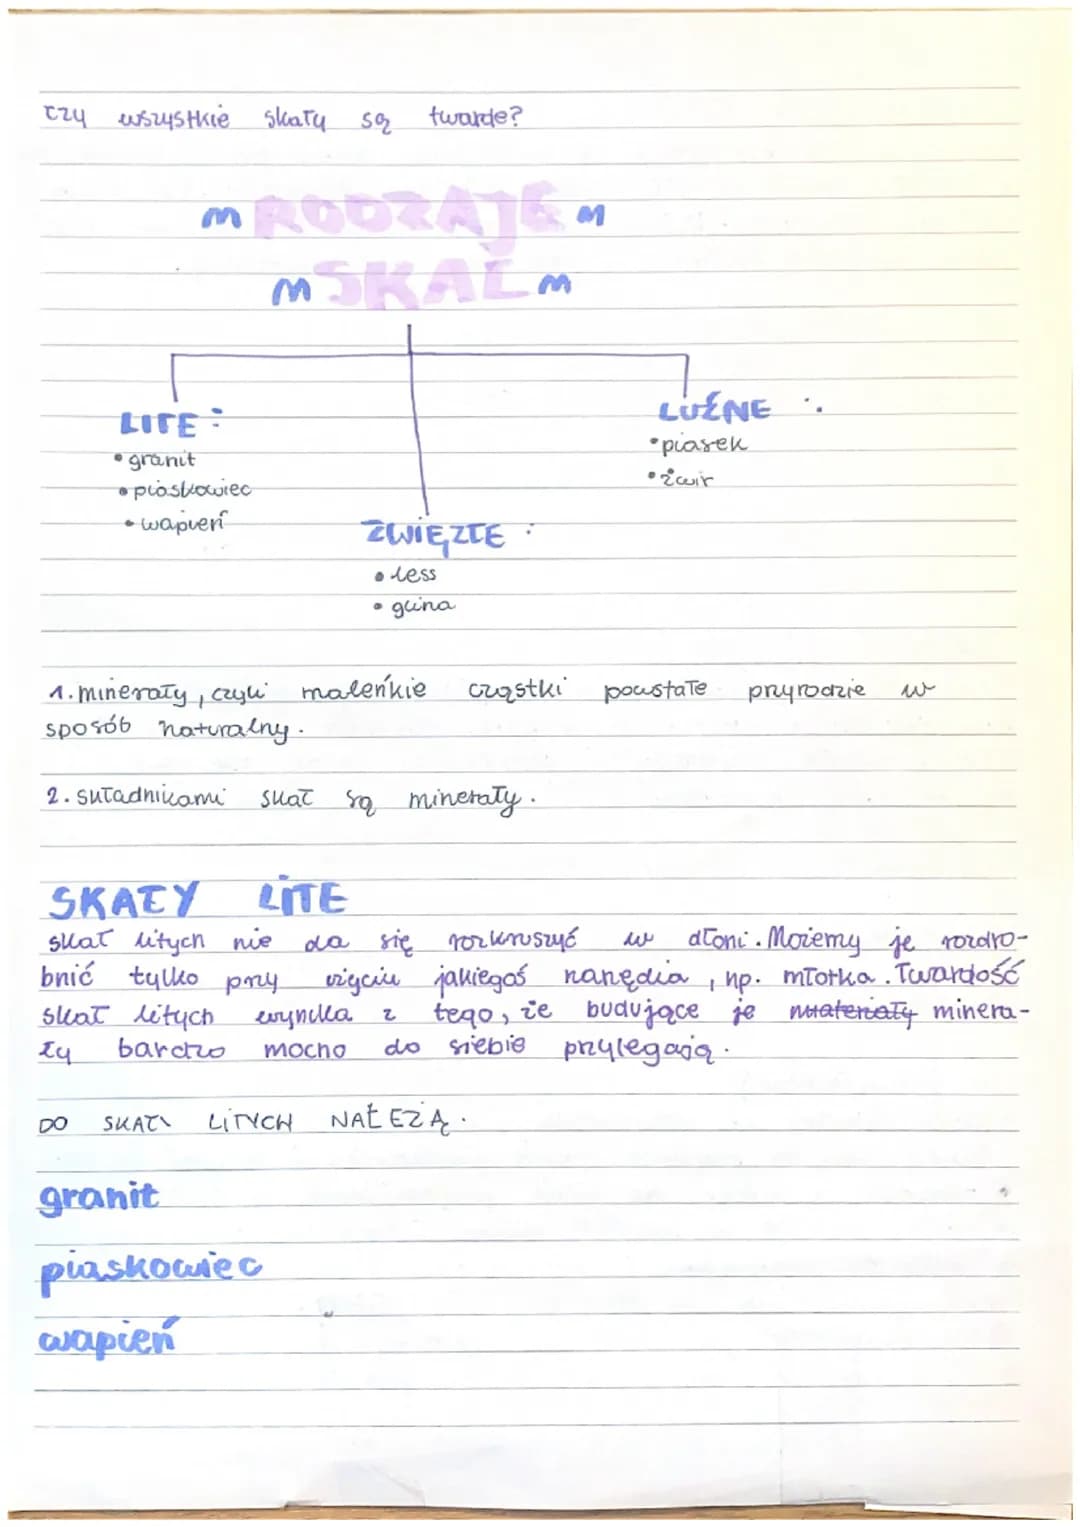 czy wszystkie skały są twarde?
RODZAJE
SKAŁ
LITE:
• granit
• piaskowiec
• wapień
LUŹNE :
• piasek
• żwir
ZWIĘZŁE :
• less
• glina
1. minerały, czyli maleńkie cząstki powstałe przyrodzie w
sposób naturalny.
2. składnikami skał są minerały.
SKAŁY LITE
skał litych nie da się rozkruszyć w dłoni. Możemy je rozdro-
bnić tylko przy użyciu jakiegoś narzędzia, np. młotka. Twardość
skał litych wynika z tego, że budujące je materiały minera-
ły bardzo mocno do siebie przylegają.
DO SKAŁ LITYCH NAŁEZĄ.
granit
piaskowiec
wapień